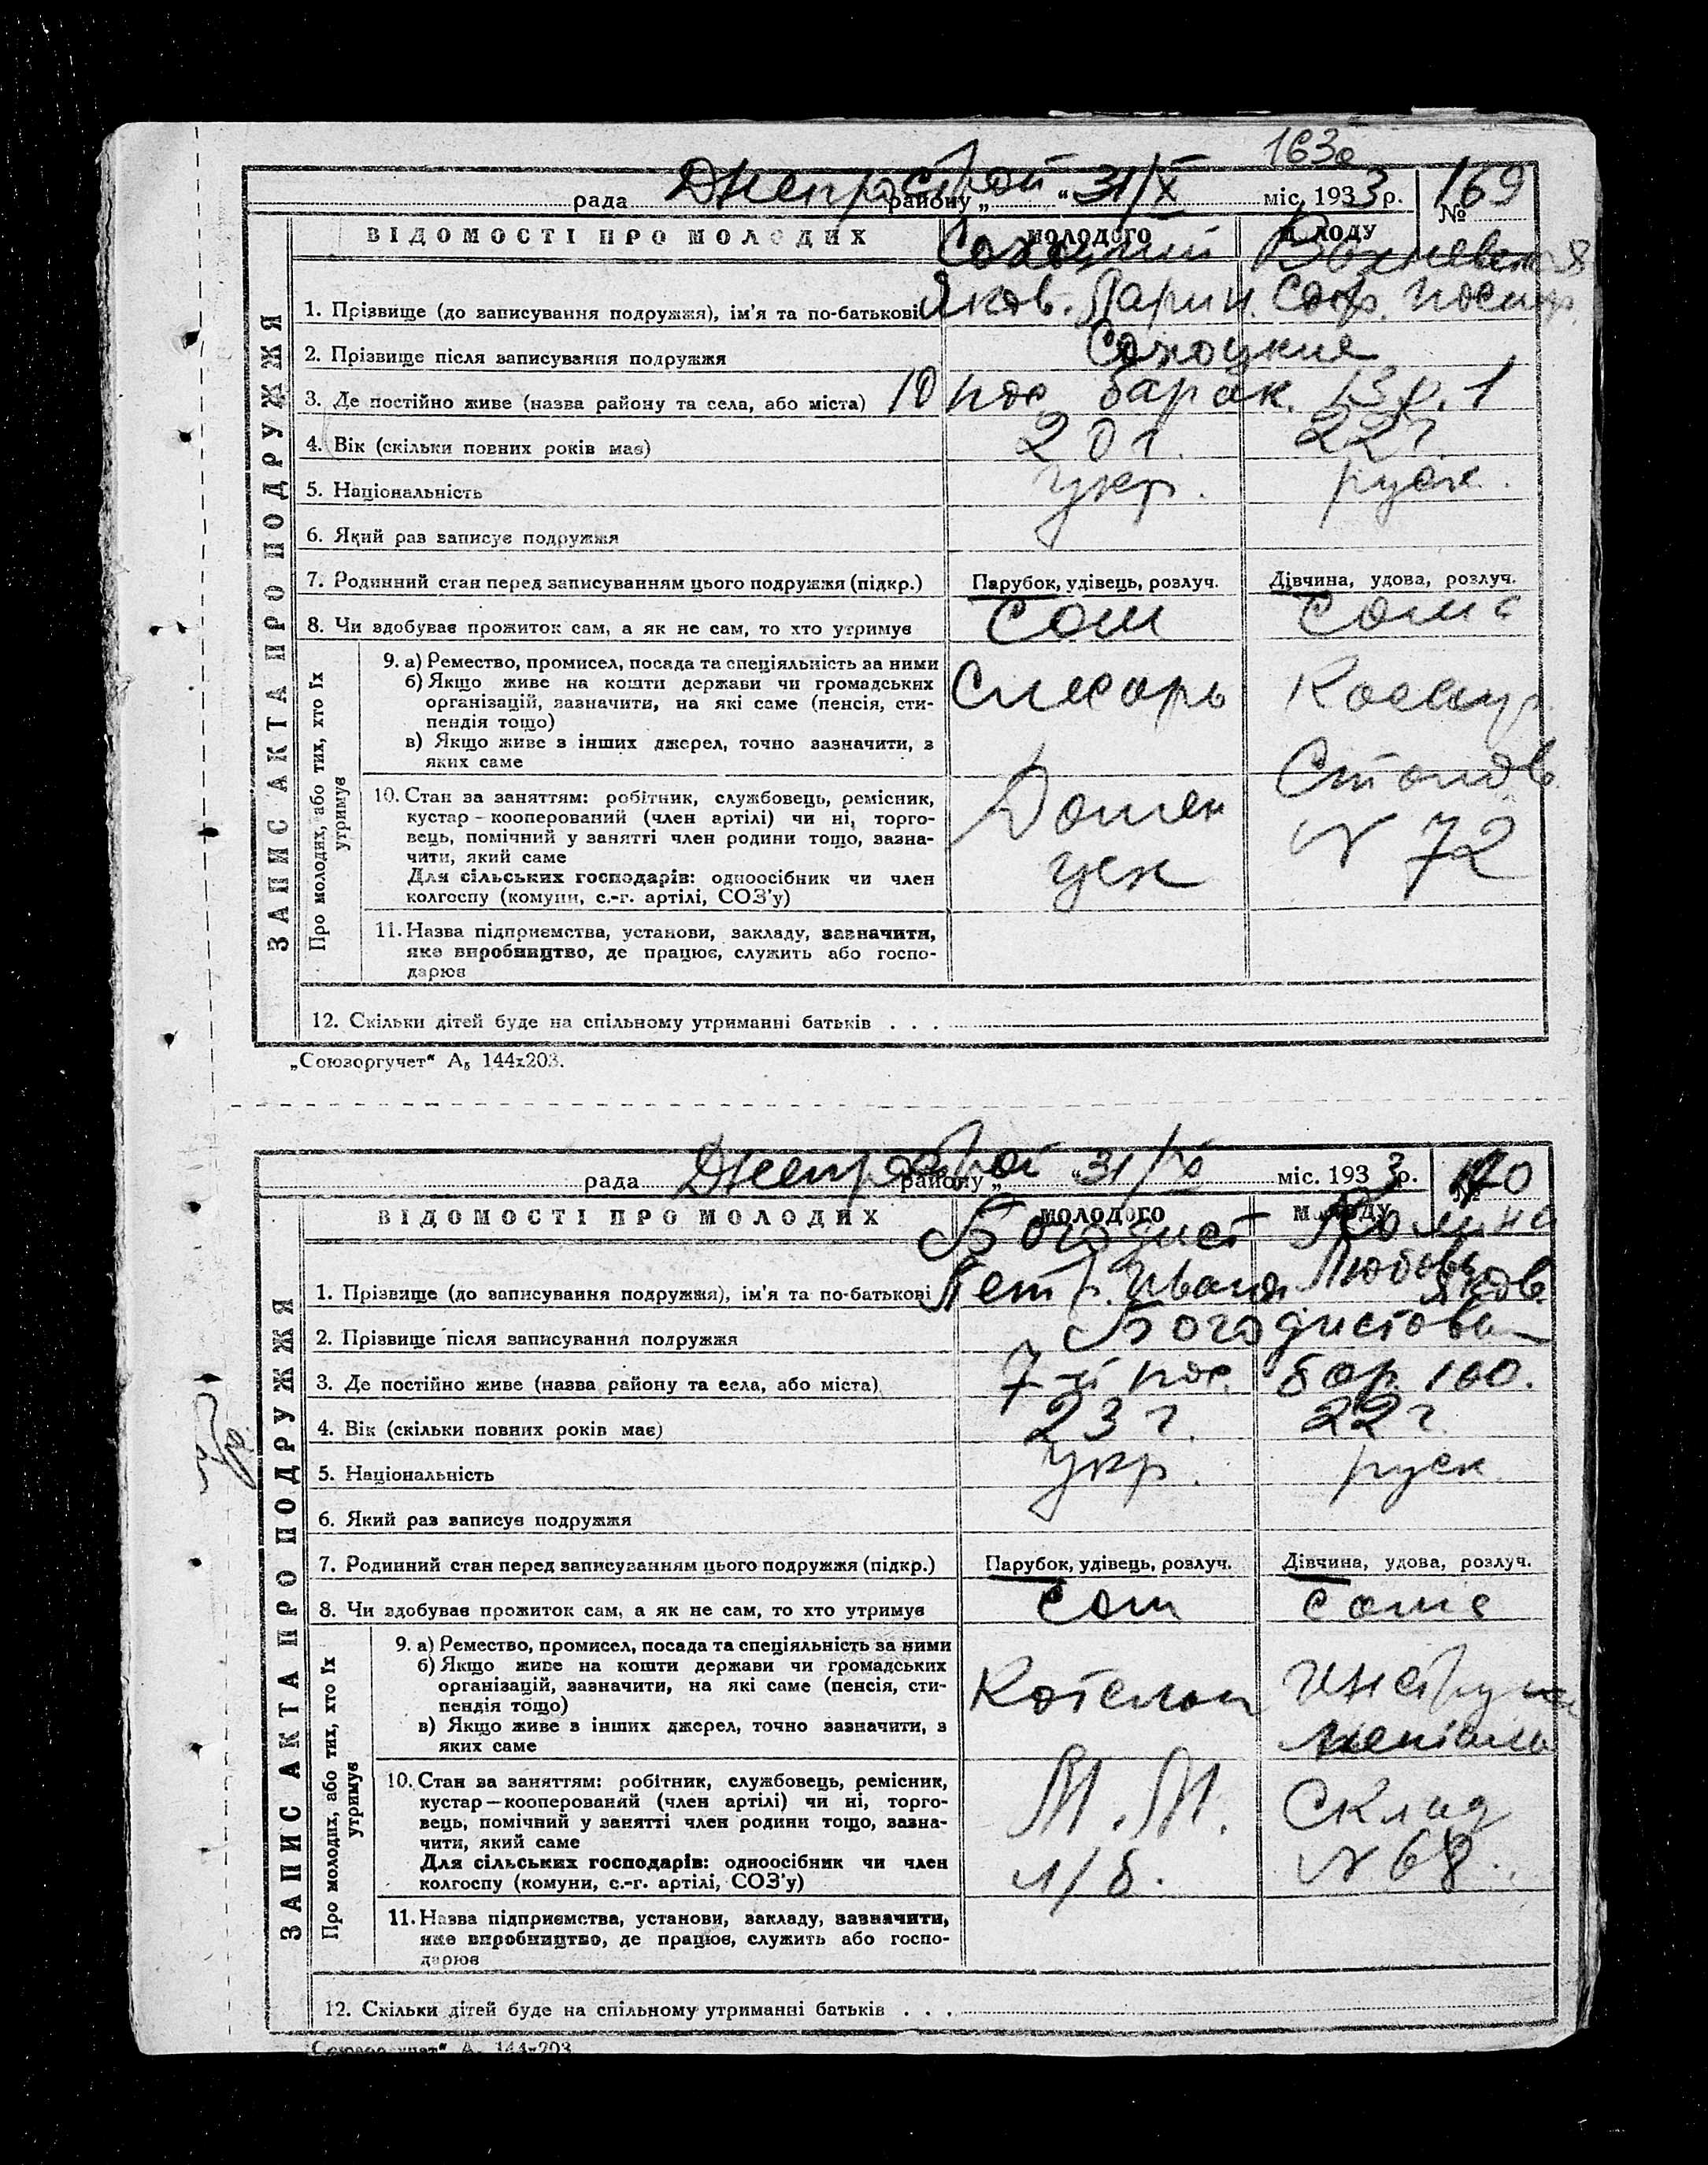 163
рада Днепрострой району „ “ 31/X міс. 1933 р. № 169
ВІДОМОСТІ ПРО МОЛОДИХ МОЛОДОГО МОЛОДУ
ЗАПИС АКТА ПРО ПОДРУЖЖЯ
1. Прізвище (до записування подружжя), ім'я та по-батькові Яков.
2. Прізвище після записування подружжя
3. Де постійно живе (назва району та села, або міста) 10 пос барак. 13 к. 1
4. Вік (скільки повних років має) 20 г. 22 г.
5. Національність укр. руск.
6. Який раз записує подружжя
7. Родинний стан перед записуванням цього подружжя (підкр.) Парубок, удівець, розлуч. Дівчина, удова, розлуч.
8. Чи здобуває прожиток сам, а як не сам, то хто утримує сам сама
Про молодих, або тих, хто їх утримує
9. а) Ремество, промисел, посада та спеціяльність за ними
б) Якщо живе на кошти держави чи громадських
організацій, зазначити, на які саме (пенсія, сти-
пендія тощо)
в) Якщо живе з інших джерел, точно зазначити, з
яких саме
Слесарь
10. Стан за заняттям: робітник, службовець, ремісник,
кустар – кооперований (член артілі) чи ні, торго-
вець, помічний у занятті член родини тощо, зазна-
чити, який саме
Для сільських господарів: одноосібник чи член
колгоспу (комуни, с.-г. артілі, СОЗ'у)
Домен
цех
Столов.
№ 72
11. Назва підприємства, установи, закладу, зазначити,
яке виробництво, де працює, служить або госпо-
дарює
12. Скільки дітей буде на спільному утриманні батьків . . .
„Союзоргучет“ А₅ 144х203.
рада Днепрострой району „ “ 31/X міс. 1933 р. № 170
ВІДОМОСТІ ПРО МОЛОДИХ МОЛОДОГО МОЛОДУ
Богодист
ЗАПИС АКТА ПРО ПОДРУЖЖЯ
1. Прізвище (до записування подружжя), ім'я та по-батькові Петр. Иван. Любовь Яков.
2. Прізвище після записування подружжя Богодистовы
3. Де постійно живе (назва району та села, або міста) 7-й пос. бар. 100.
4. Вік (скільки повних років має) 23 г. 22 г.
5. Національність укр. руск
6. Який раз записує подружжя
7. Родинний стан перед записуванням цього подружжя (підкр.) Парубок, удівець, розлуч. Дівчина, удова, розлуч.
8. Чи здобуває прожиток сам, а як не сам, то хто утримує сам сама
Про молодих, або тих, хто їх утримує
9. а) Ремество, промисел, посада та спеціяльність за ними
б) Якщо живе на кошти держави чи громадських
організацій, зазначити, на які саме (пенсія, сти-
пендія тощо)
в) Якщо живе з інших джерел, точно зазначити, з
яких саме
10. Стан за заняттям: робітник, службовець, ремісник,
кустар—кооперований (член артілі) чи ні, торго-
вець, помічний у занятті член родини тощо, зазна-
чити, який саме
Для сільських господарів: одноосібник чи член
колгоспу (комуни, с.-г. артілі, СОЗ'у)
М.М.
Склад
№ 68.
11. Назва підприємства, установи, закладу, зазначити,
яке виробництво, де працює, служить або госпо-
дарює
12. Скільки дітей буде на спільному утриманні батьків . . .
144х203